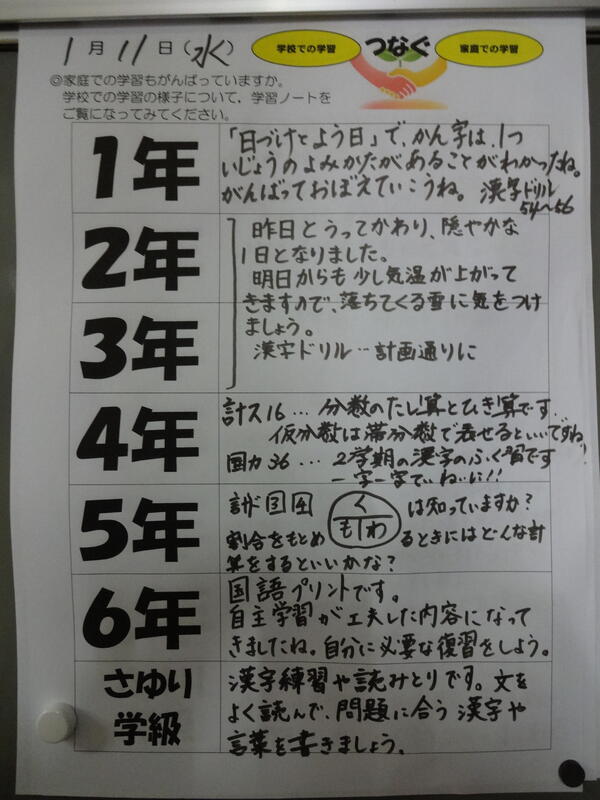 1月11日(水)
学校での学習 つなぐ 家庭での学習
◎家庭での学習もがんばっていますか。
学校での学習の様子について、学習ノートを
ご覧になってみてください。
1年
「日づけとよう日」で、かん字は、1つ
いじょうのよみかたがあることがわかったね。
がんばっておぼえていこうね。漢字ドリル
54～56
2年
3年
昨日とうってかわり、隠やかな
1日となりました。
明日からも少し気温が上がって
きますので、落ちてくる雪に気をつけ
ましょう。
漢字ドリル…計画通りに
4年
計ス16…分数のたし算とひき算です…
仮分数は帯分数で表せるといいですね!
国カ36…2学期の漢字のふく習です
一字一字ていねいに!!
5年
計ド 3 4 く も わ は知っていますか?
割合をもとめるときにはどんな計
算をするといいかな?
6年
国語プリントです。
自主学習が工夫した内容になって
きましたね。自分に必要な復習をしよう。
さゆり
学級
漢字練習や読みとりです。文を
よく読んで、問題に合う漢字や
言葉を書きましょう。